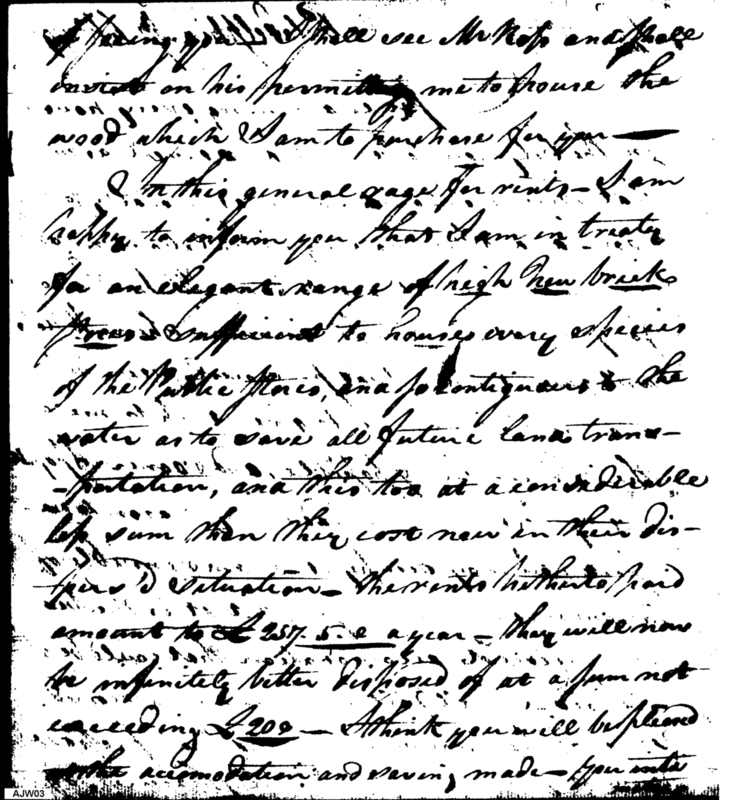 of seeing you I shall see Mr Ross and shall
insist on his permitting me to house the
wood which I am to purchase for you —
In this general rage for rents — I am
happy to inform you that I am in treaty
for an elegant range of high New brick
Stores sufficient to house every species
of the Public Stores, and so contiguous to the
water as to save all future land trans-
-portation, and this too at a considerable
less sum than they cost now in their dis-
-pers'd situation — the rents hitherto paid
amount to £257.5.2 a year — they will now
be infinitely better disposed of at a sum not
exceeding £200 — I think you will be pleased
the accomodation and saving made — your
AJW03